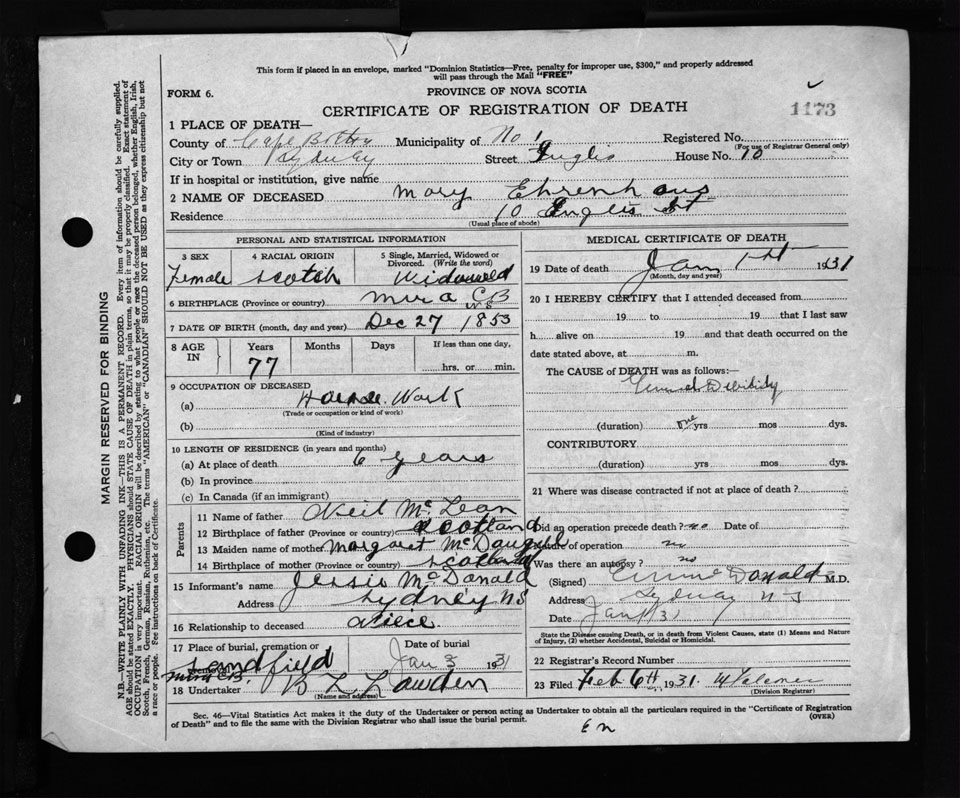 This form if placed in an envelope, marked "Dominion Statistics—Free, penalty for improper use, $300," and properly addressed
will pass through the Mail "FREE"
FORM 6.
PROVINCE OF NOVA SCOTIA
CERTIFICATE OF REGISTRATION OF DEATH
1173
1 PLACE OF DEATH—
County of Cape Breton Municipality of No 1 Registered No.
(For use of Registrar General only)
City or Town Sydney Street Inglis House No. 10
If in hospital or institution, give name
2 NAME OF DECEASED Mary Ehrenhaus
Residence 10 Inglis St
(Usual place of abode)
PERSONAL AND STATISTICAL INFORMATION
3 SEX 4 RACIAL ORIGIN 5 Single, Married, Widowed or Divorced. (Write the word)
Female Scotch Widowed
6 BIRTHPLACE (Province or country) Mira CB
N S
7 DATE OF BIRTH (month, day and year) Dec 27 1853
8 AGE IN Years Months Days If less than one day,
77 hrs. or min.
9 OCCUPATION OF DECEASED
(a) House Work
(Trade or occupation or kind of work)
(b)
(Kind of industry)
10 LENGTH OF RESIDENCE (in years and months)
(a) At place of death 6 years
(b) In province
(c) In Canada (if an immigrant)
Parents
11 Name of father Neil McLean
12 Birthplace of father (Province or country) Scotland
13 Maiden name of mother Margaret McDougall
14 Birthplace of mother (Province or country) Scotland
15 Informant's name Jessie McDonald
Address Sydney N S
16 Relationship to deceased Niece
17 Place of burial, cremation or
Date of burial
Sandfield
Mira C.B.
Jan 3 1931
18 Undertaker
(Name and address)
MEDICAL CERTIFICATE OF DEATH
19 Date of death Jan 1st 1931
(Month, day and year)
20 I HEREBY CERTIFY that I attended deceased from
19 to 19 that I last saw
h alive on 19 and that death occurred on the
date stated above, at m.
The CAUSE of DEATH was as follows:—
General Debility
(duration) one yrs mos dys.
CONTRIBUTORY
(duration) yrs mos dys.
21 Where was disease contracted if not at place of death?
Did an operation precede death? no Date of
Nature of operation no
Was there an autopsy? no
(Signed) Donald M.D.
Address Sydney N S
Date Jan 1/31
State the Disease causing Death, or in death from Violent Causes, state (1) Means and Nature
of Injury, (2) whether Accidental, Suicidal or Homicidal.
22 Registrar's Record Number
23 Filed Feb 6th 1931
(Division Registrar)
Sec. 46—Vital Statistics Act makes it the duty of the Undertaker or person acting as Undertaker to obtain all the particulars required in the "Certificate of Registration
of Death" and to file the same with the Division Registrar who shall issue the burial permit.
(OVER)
MARGIN RESERVED FOR BINDING
N.B.—WRITE PLAINLY WITH UNFADING INK—THIS IS A PERMANENT RECORD. Every item of information should be carefully supplied.
AGE should be stated EXACTLY. PHYSICIANS should STATE CAUSE OF DEATH in plain terms, so that it may be properly classified. Exact statement of
OCCUPATION is very important. RACIAL ORIGIN will be described by stating to what people or race the deceased person belonged, whether English, Irish,
Scotch, French, German, Russian, Ruthenian, etc. The terms "AMERICAN" or "CANADIAN" SHOULD NOT BE USED as they express citizenship but not
a race or people. See instructions on back of Certificate.